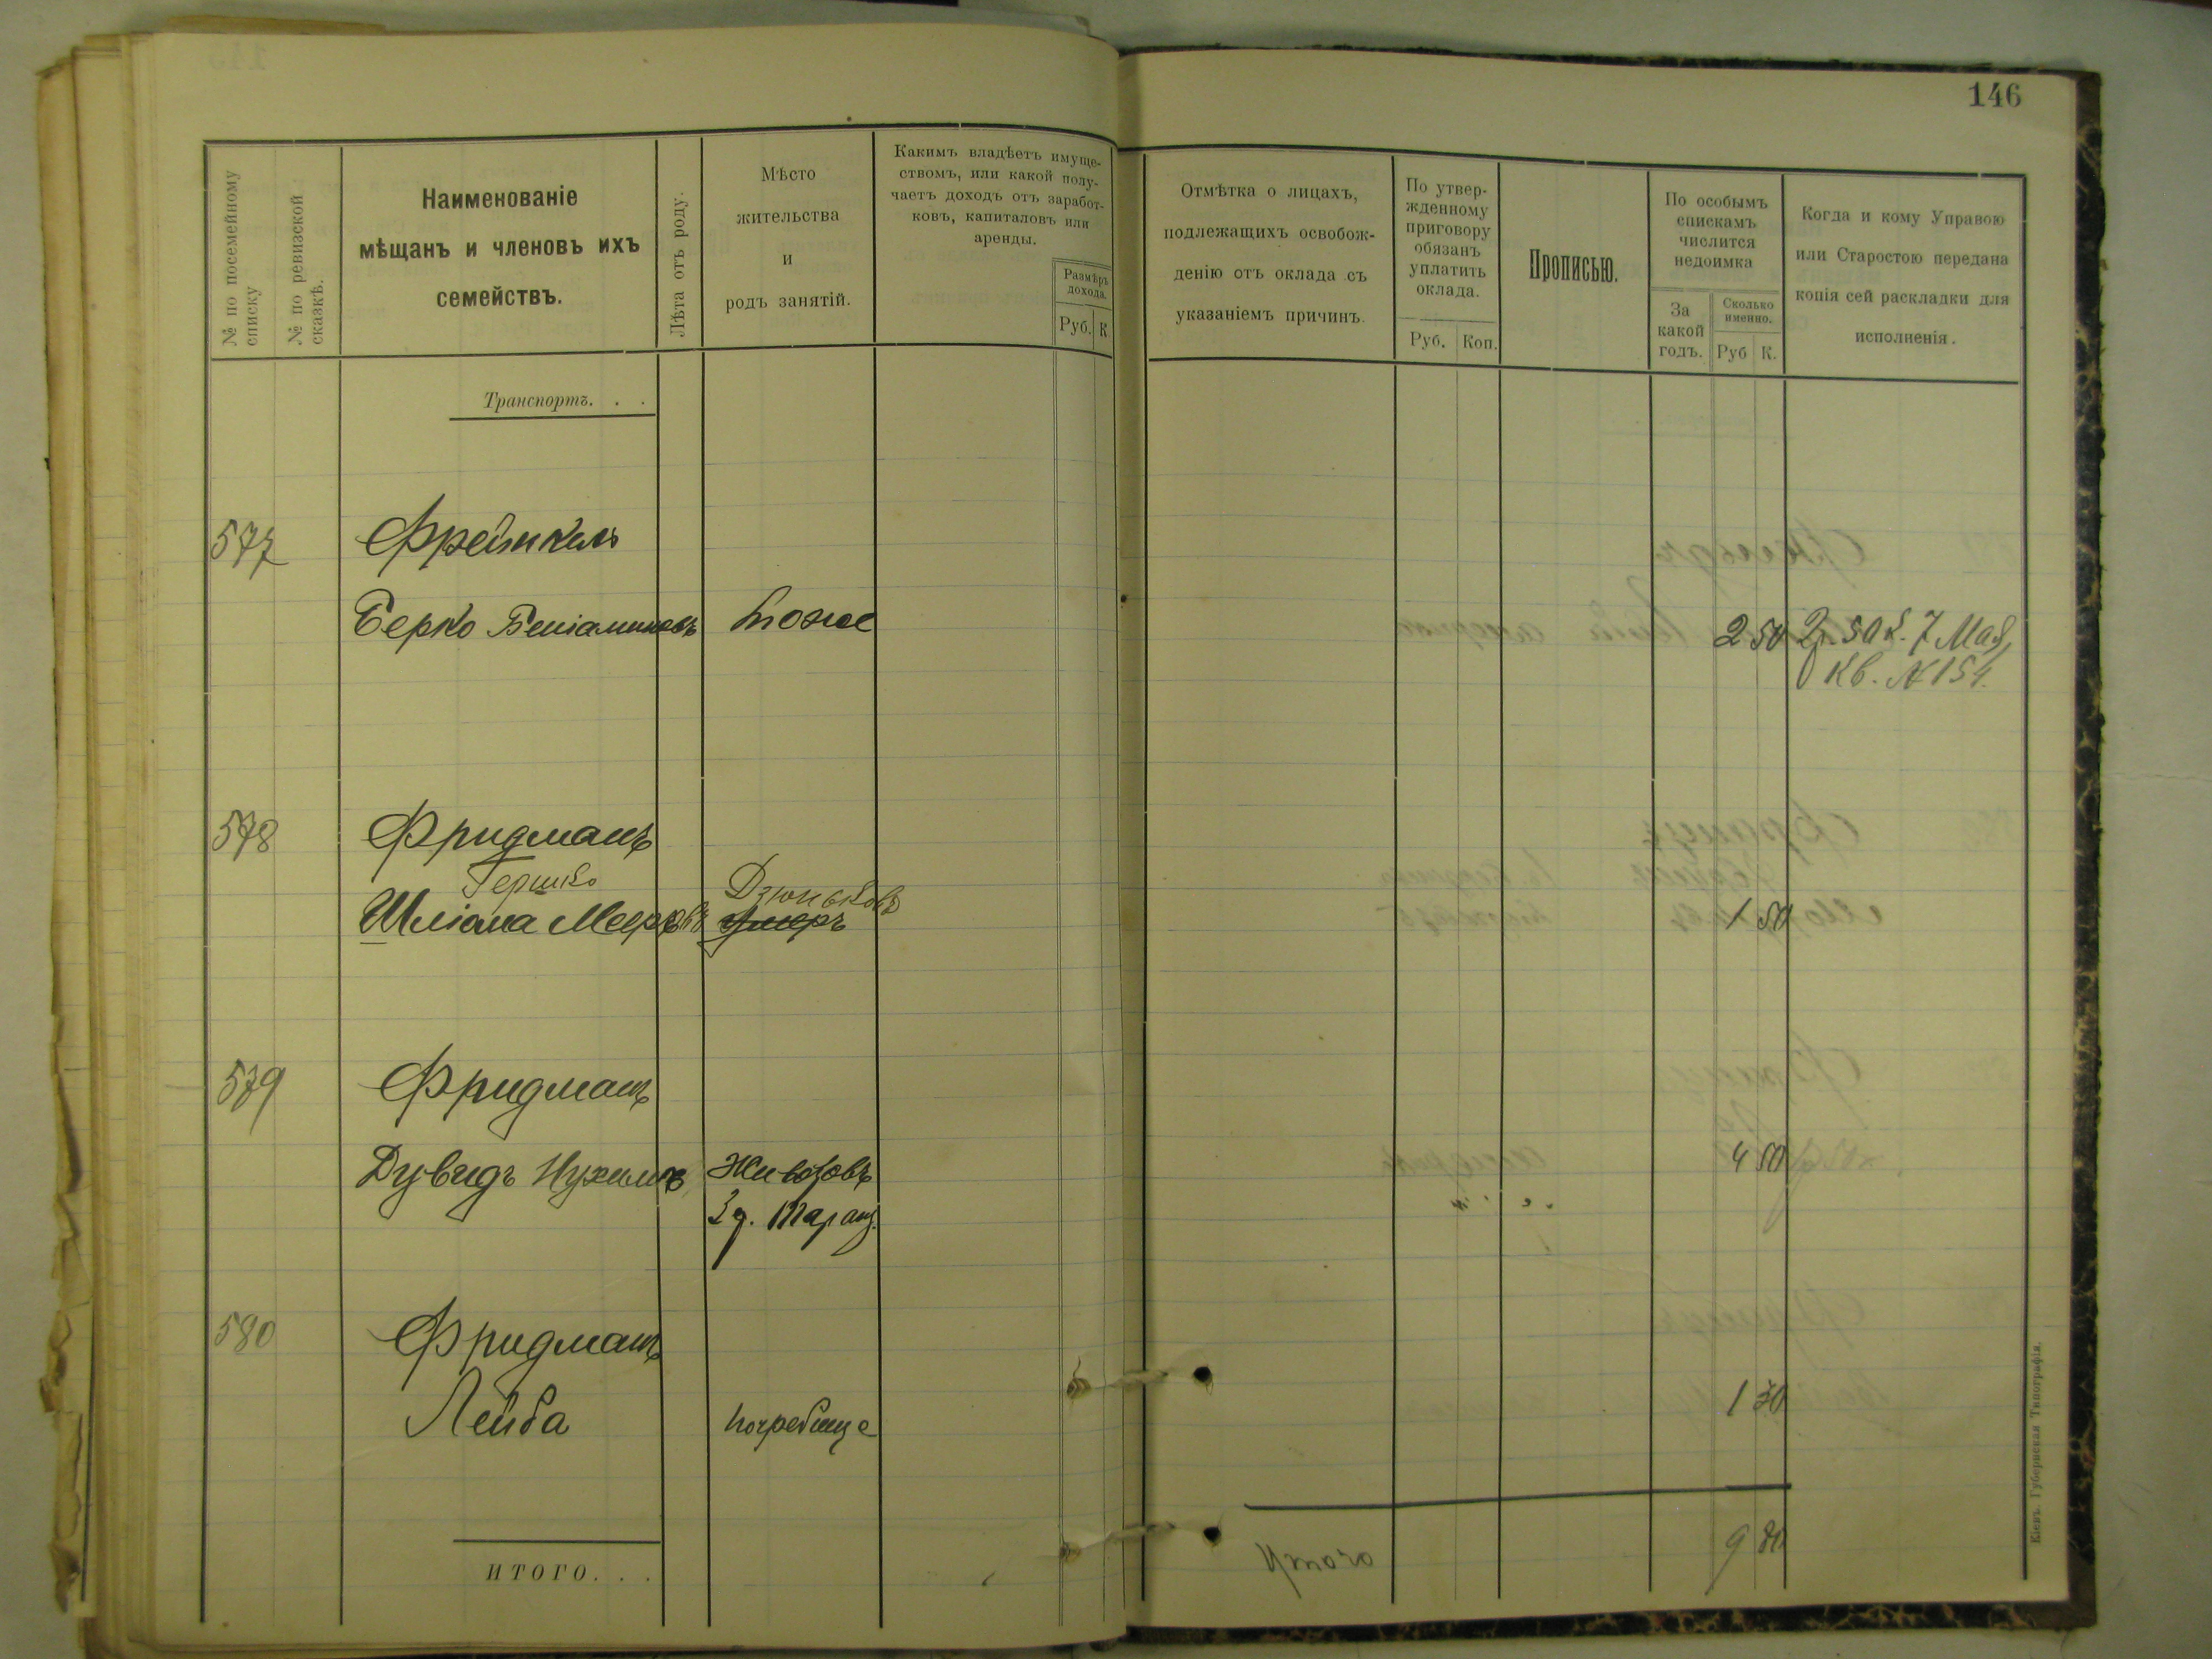 146
№ по посемейному списку
№ по ревизской сказкѣ.
Наименованіе
мѣщанъ и членовъ ихъ
семействъ.
Лѣта отъ роду.
Мѣсто
жительства
и
родъ занятій.
Какимъ владѣетъ имуще-
ствомъ, или какой полу-
чаетъ доходъ отъ заработ-
ковъ, капиталовъ или
аренды.
Размѣръ
дохода.
Руб. К
Отмѣтка о лицахъ,
подлежащихъ освобож-
денію отъ оклада съ
указаніемъ причинъ.
По утвер-
жденному
приговору
обязанъ
уплатить
оклада.
Руб. Коп.
Прописью.
По особымъ
спискамъ
числится
недоимка
За
какой
годъ.
Сколько
именно.
Руб К.
Когда и кому Управою
или Старостою передана
копія сей раскладки для
исполненія.
Транспортъ. . .
577 Френкель
Берко Беніаминовъ тоже 2 50 2р. 50 к. 7 Мая,
Кв. № 154.
578 Фридманъ
Гершко Дзюньковъ
Шліома Мееровъ умеръ 1 50
579 Фридманъ
Дувидъ Нухимовъ Животовъ 4 50
580 Фридманъ
Лейба Погребище 1 30
ИТОГО. . .
Итого 9 80
Кіевъ. Губернская Типографія.